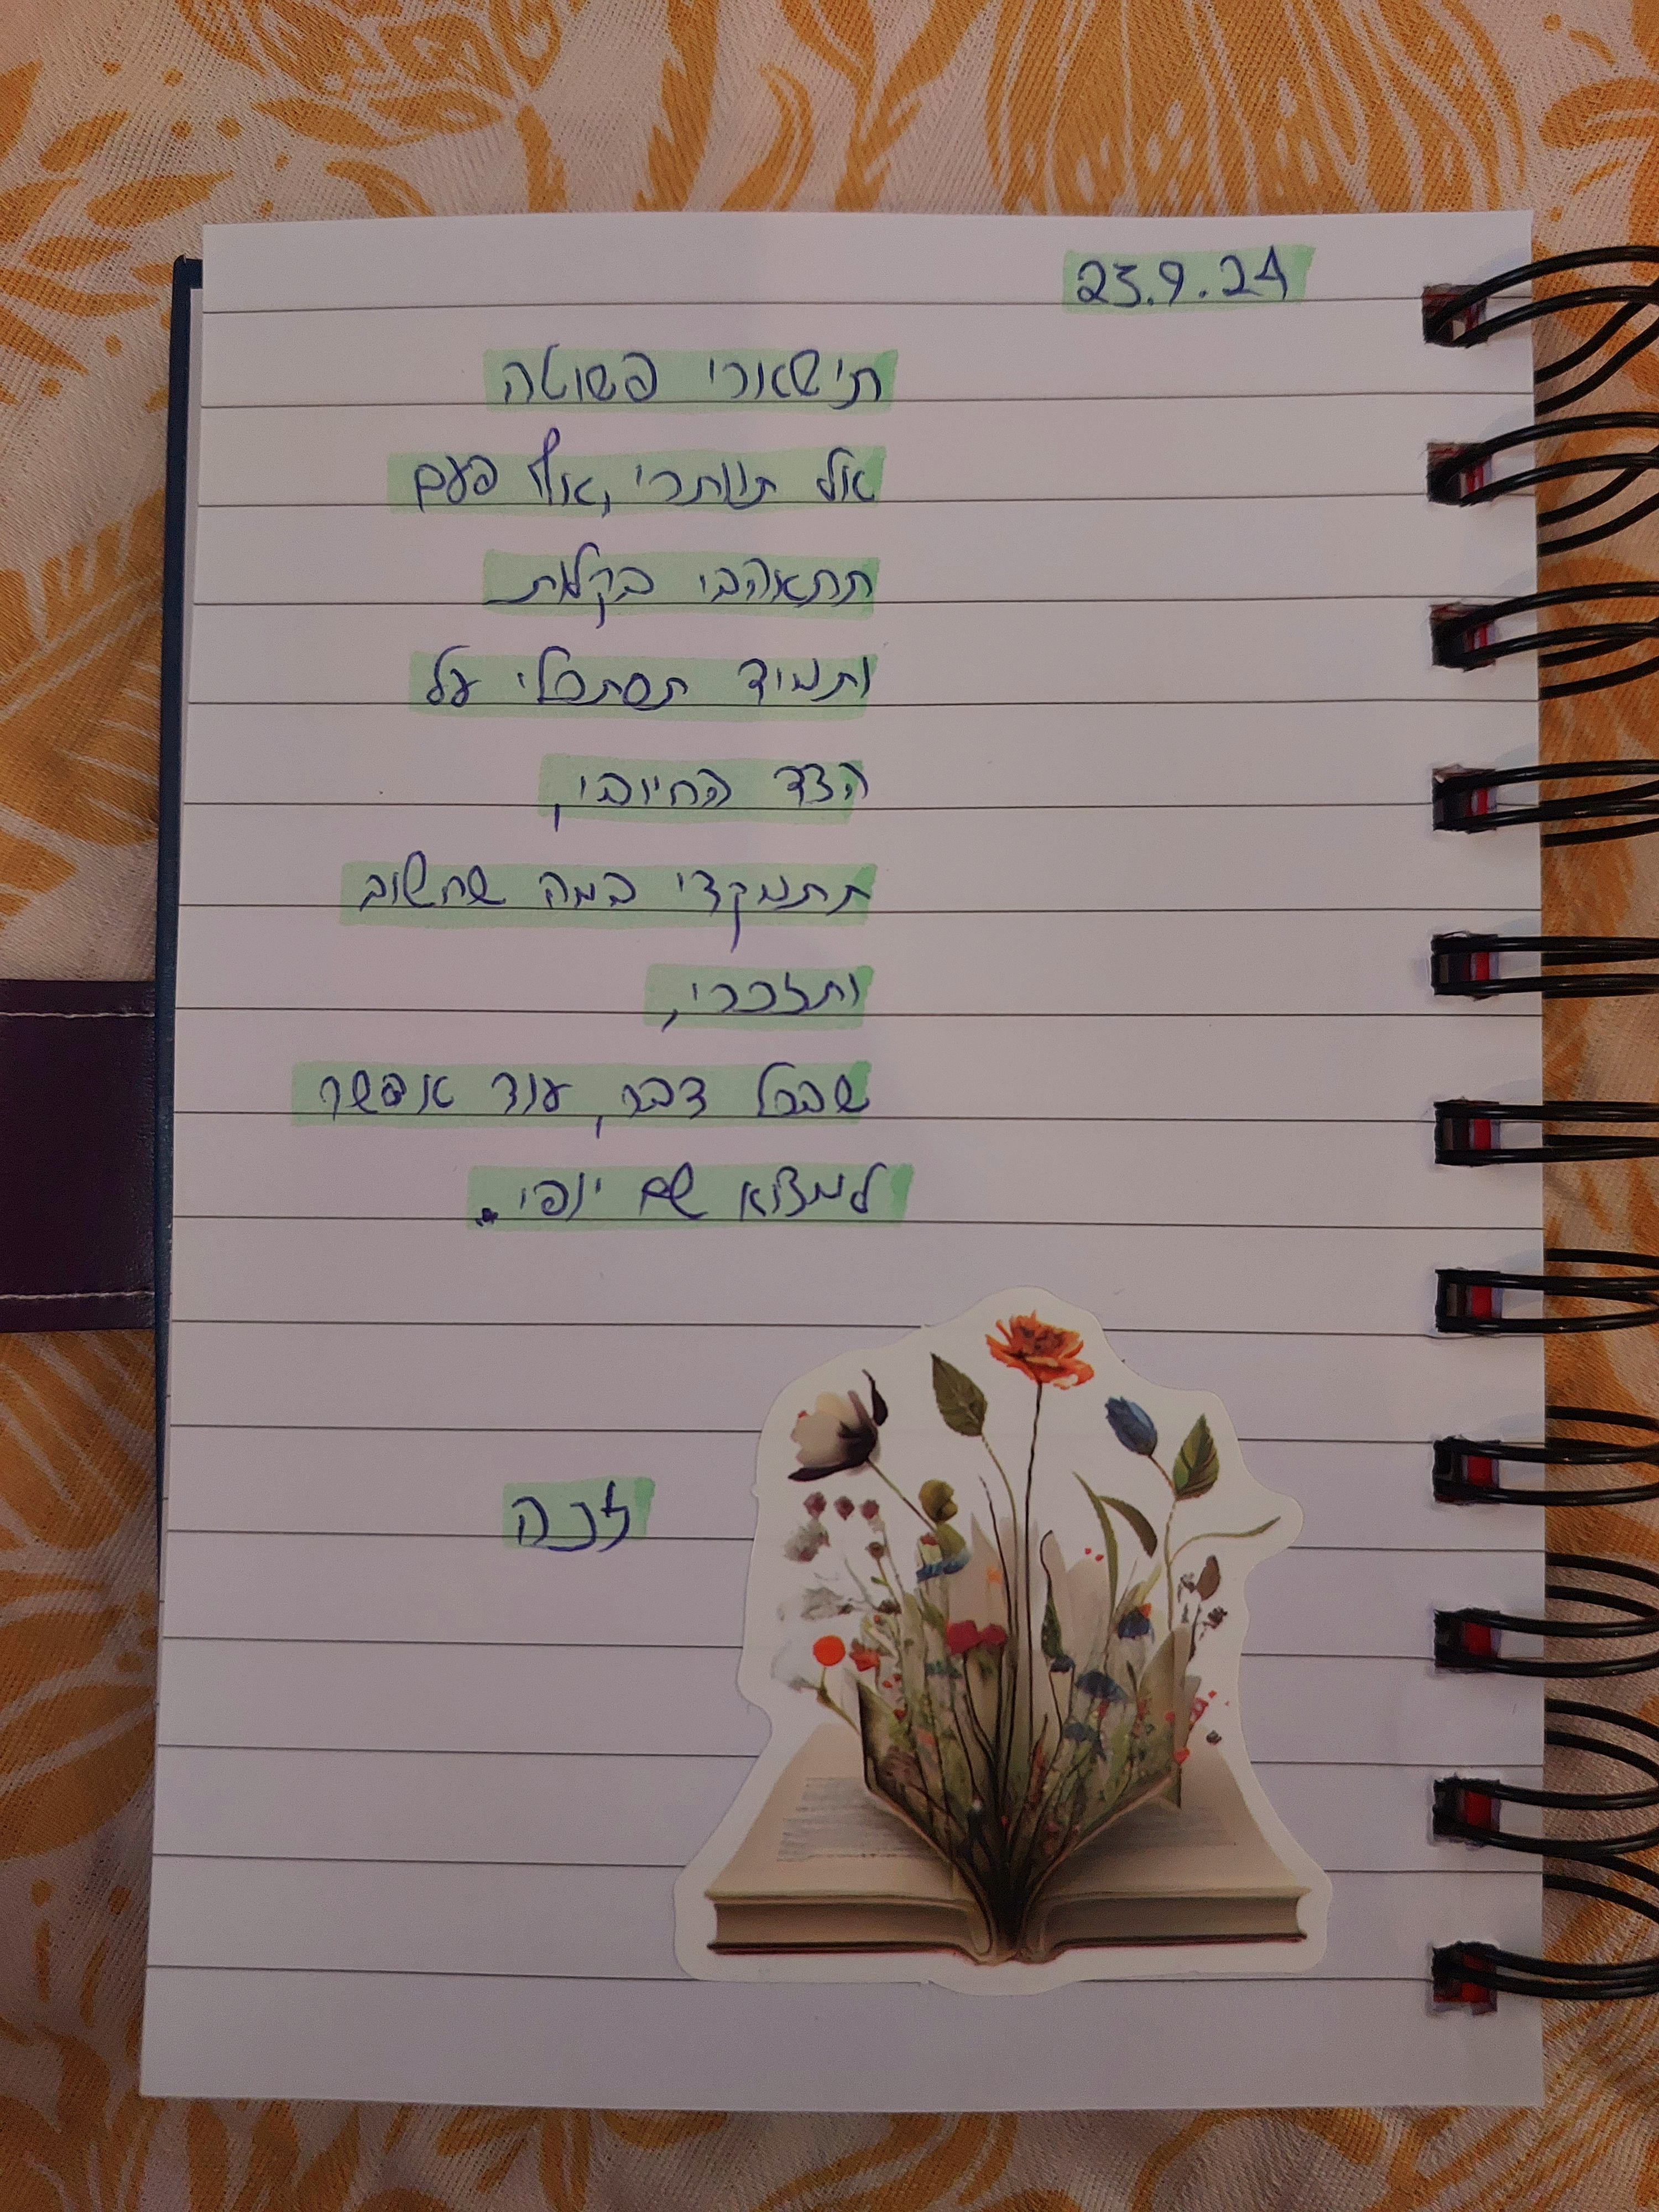 23.9.24
תישארי פשוטה
אל תוותרי, אף פעם
תתאהבי בקלות
ותמיד תסתכלי על
הצד החיובי,
תתמקדי במה שחשוב
ותזכרי,
שבכל דבר, עוד אפשר
למצוא שם יופי.